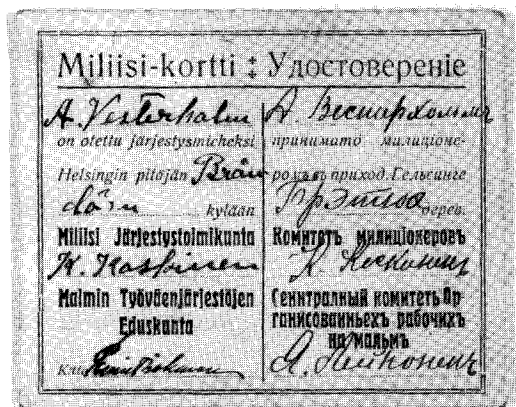 Miliisi-kortti : Удостовереніе
A. Vesterholm
on otettu järjestysmieheksi
Helsingin pitäjän Brän
dörn kylään
Miliisi Järjestystoimikunta
K. Koskinen
Malmin Työväenjärjestöjen
Eduskunta
А. Вестерхольмъ
принимато милиціоне-
ромъ въ приход. Гельсинге
дерев.
Комитетъ милиціонеровъ
К. Коскиненъ
Сентралный комитетъ Ор-
ганисованныехъ рабочихъ
на мальмъ